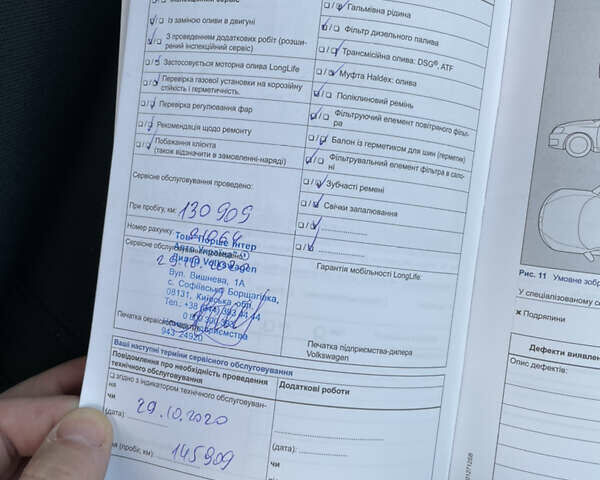 Із заміною оливи в двигуні
З проведенням додаткових робіт (розши-
рений інспекційний сервіс)
Застосовується моторна олива LongLife
Перевірка газової установки на корозійну
стійкість і герметичність.
Перевірка регулювання фар
Рекомендація щодо ремонту
Побажання клієнта
(також відзначити в замовленні-наряді)
Сервісне обслуговування проведено:
При пробігу, км: 130 909
Номер рахунку:
Тов "Порше Інтер
Авто Україна"
Дилер Volkswagen
Вул. Вишнева, 1А
с. Софіївська Борщагівка,
08131, Київська обл.
943 24920
Гальмівна рідина
Фільтр дизельного палива
Трансмісійна олива: DSG®, ATF
Муфта Haldex: олива
Поліклиновий ремінь
Фільтруючий елемент повітряного фільт-
ра
Балон із герметиком для шин (герметик)
Фільтрувальний елемент фільтра в сало-
ні
Зубчасті ремені
Свічки запалювання
Гарантія мобільності LongLife:
Печатка підприємства-дилера
Volkswagen
Ваші наступні терміни сервісного обслуговування
Повідомлення про необхідність проведення
технічного обслуговування
згідно з індикатором технічного обслуговуван-
ня
чи
(дата): 29.10.2020
(пробіг, км): 145 909
Додаткові роботи
(дата):
чи
Рис. 11 Умовне зобр
У спеціалізованому с
× Подряпини
Дефекти виявлен
Опис дефектів: